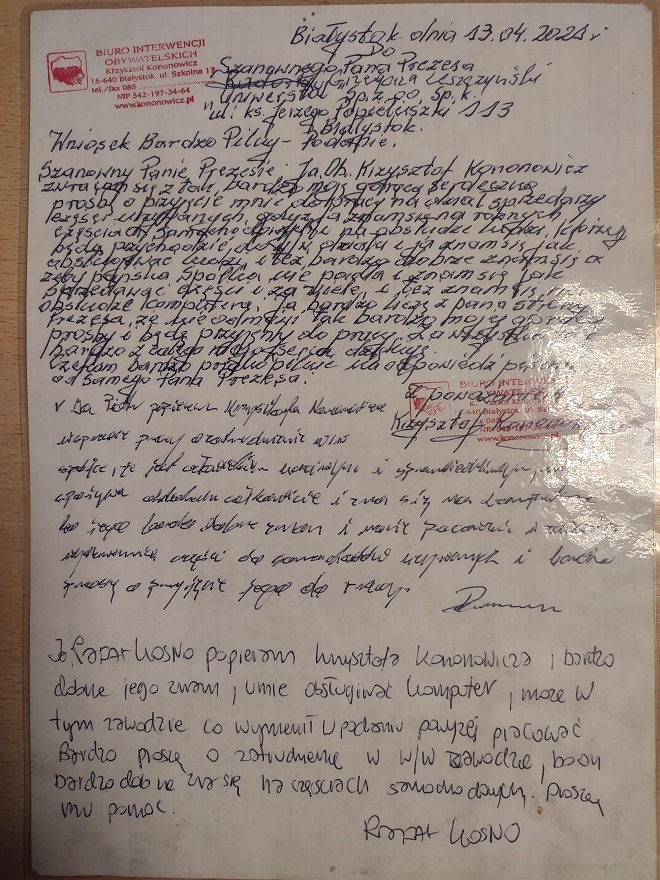 Białystok dnia 13.04.2021 r
Do
BIURO INTERWENCJI
OBYWATELSKICH
Krzysztof Kononowicz
15-640 Białystok, ul. Szkolna 17
tel./fax 085
NIP 542-197-34-64
www.kononowicz.pl
Szanownego Pana Prezesa
Leszczyński
Uniwerstal Sp. z o.o. Sp. k.
ul. ks. Jerzego Popiełuszki 113
Białystok.
Wniosek Bardzo Pilny - Podanie.
Szanowny Panie Prezesie. Ja Ob. Krzysztof Kononowicz
zwracam się z tak bardzo moją gorącą serdeczną
prośbą o przyjęcie mnie do pracy na dział sprzedarzy
części używanych, gdyż ja znam się na różnych
częściach samochodowych i na obsłudze ludzi, którzy
będą przychodzić do tych działu i ja znam się jak
obsługiwać ludzi, i też bardzo dobrze znam się a
żeby pańska spółka nie padła i znam się jak
sprzedawać części i za wiele, i też znam się na
obsłudze komputera. Ja bardzo liczę z pana strony
Prezesa, że nie odmówi tak bardzo mojej gorącej
prośby i będę przyjęty do pracy. Za wszystko
bardzo z całego serca dziękuję.
Czekam bardzo pilnie na odpowiedź pisemną
od samego Pana Prezesa.
Z poważaniem
Krzysztof Kononowicz
www.kononowicz.pl
Ja Piotr popieram Krzysztofa Kononowicza
w sprawie pracy o zatrudnienie w/w
spółce, że jest człowiekiem uczciwym i sprawiedliwym, nie
spożywa alkoholu całkowicie i zna się na komputerze
bo jego bardzo dobrze znam i umie pracować i
części do samochodów używanych i bardzo
proszę o przyjęcie jego do pracy.
Ja, RAFAŁ KOSNO popieram Krzysztofa Kononowicza i bardzo
dobrze jego znam, umie obsługiwać komputer, może w
tym zawodzie co wymienił w podaniu powyżej pracować.
Bardzo proszę o zatrudnienie w w/w zawodzie, boon
bardzo dobrze zna się na częściach samochodowych. Proszę
mu pomóc.
RAFAŁ KOSNO